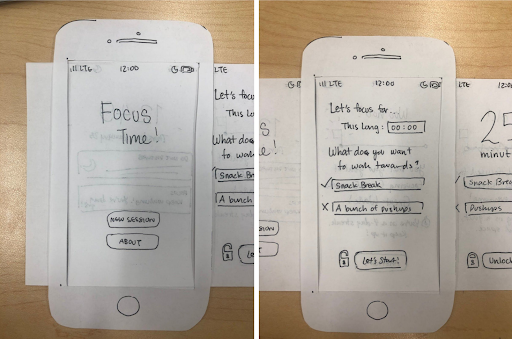 LTE 12:00
Focus
Time!
NEW SESSION
ABOUT
LTE
Let's focu
This lo
What do
to wor
Snack Br
A bunch
LTE 12:00
Let's focus for...
This long: 00:00
What do you want
to work towards?
Snack Break
A bunch of pushups
Let's Start!
LTE
25
minut
Snack Brea
Pushups
Unlock